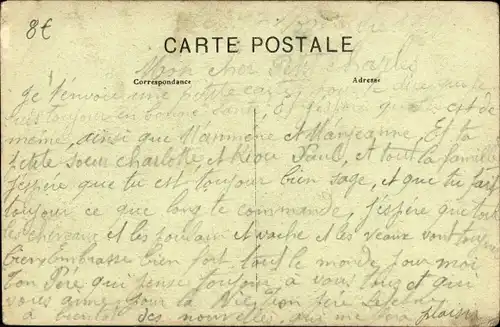 8€
CARTE POSTALE
Mon cher Petit Charles
Correspondance Adresse
Je t'envoie une petite carte pour te dire que je
suis toujours en bonne santé et j'espère que est de
même, ainsi que Mammère et Marjeanne, Et ta
petite soeur charlotte et Paul, et tout la famille
j'espère que tu est toujour bien sage, et que tu fait
toujour ce que long te commande, j'espère que tout
les cheveaux et les poulain et vache et les veaux vont toujour
bien, Embrasse bien fort tout le monde pour moi
Ton Père qui pense toujour a vous tout et qui
vous aime pour la vie
a bientot des nouvelles, qui me fera plaisir